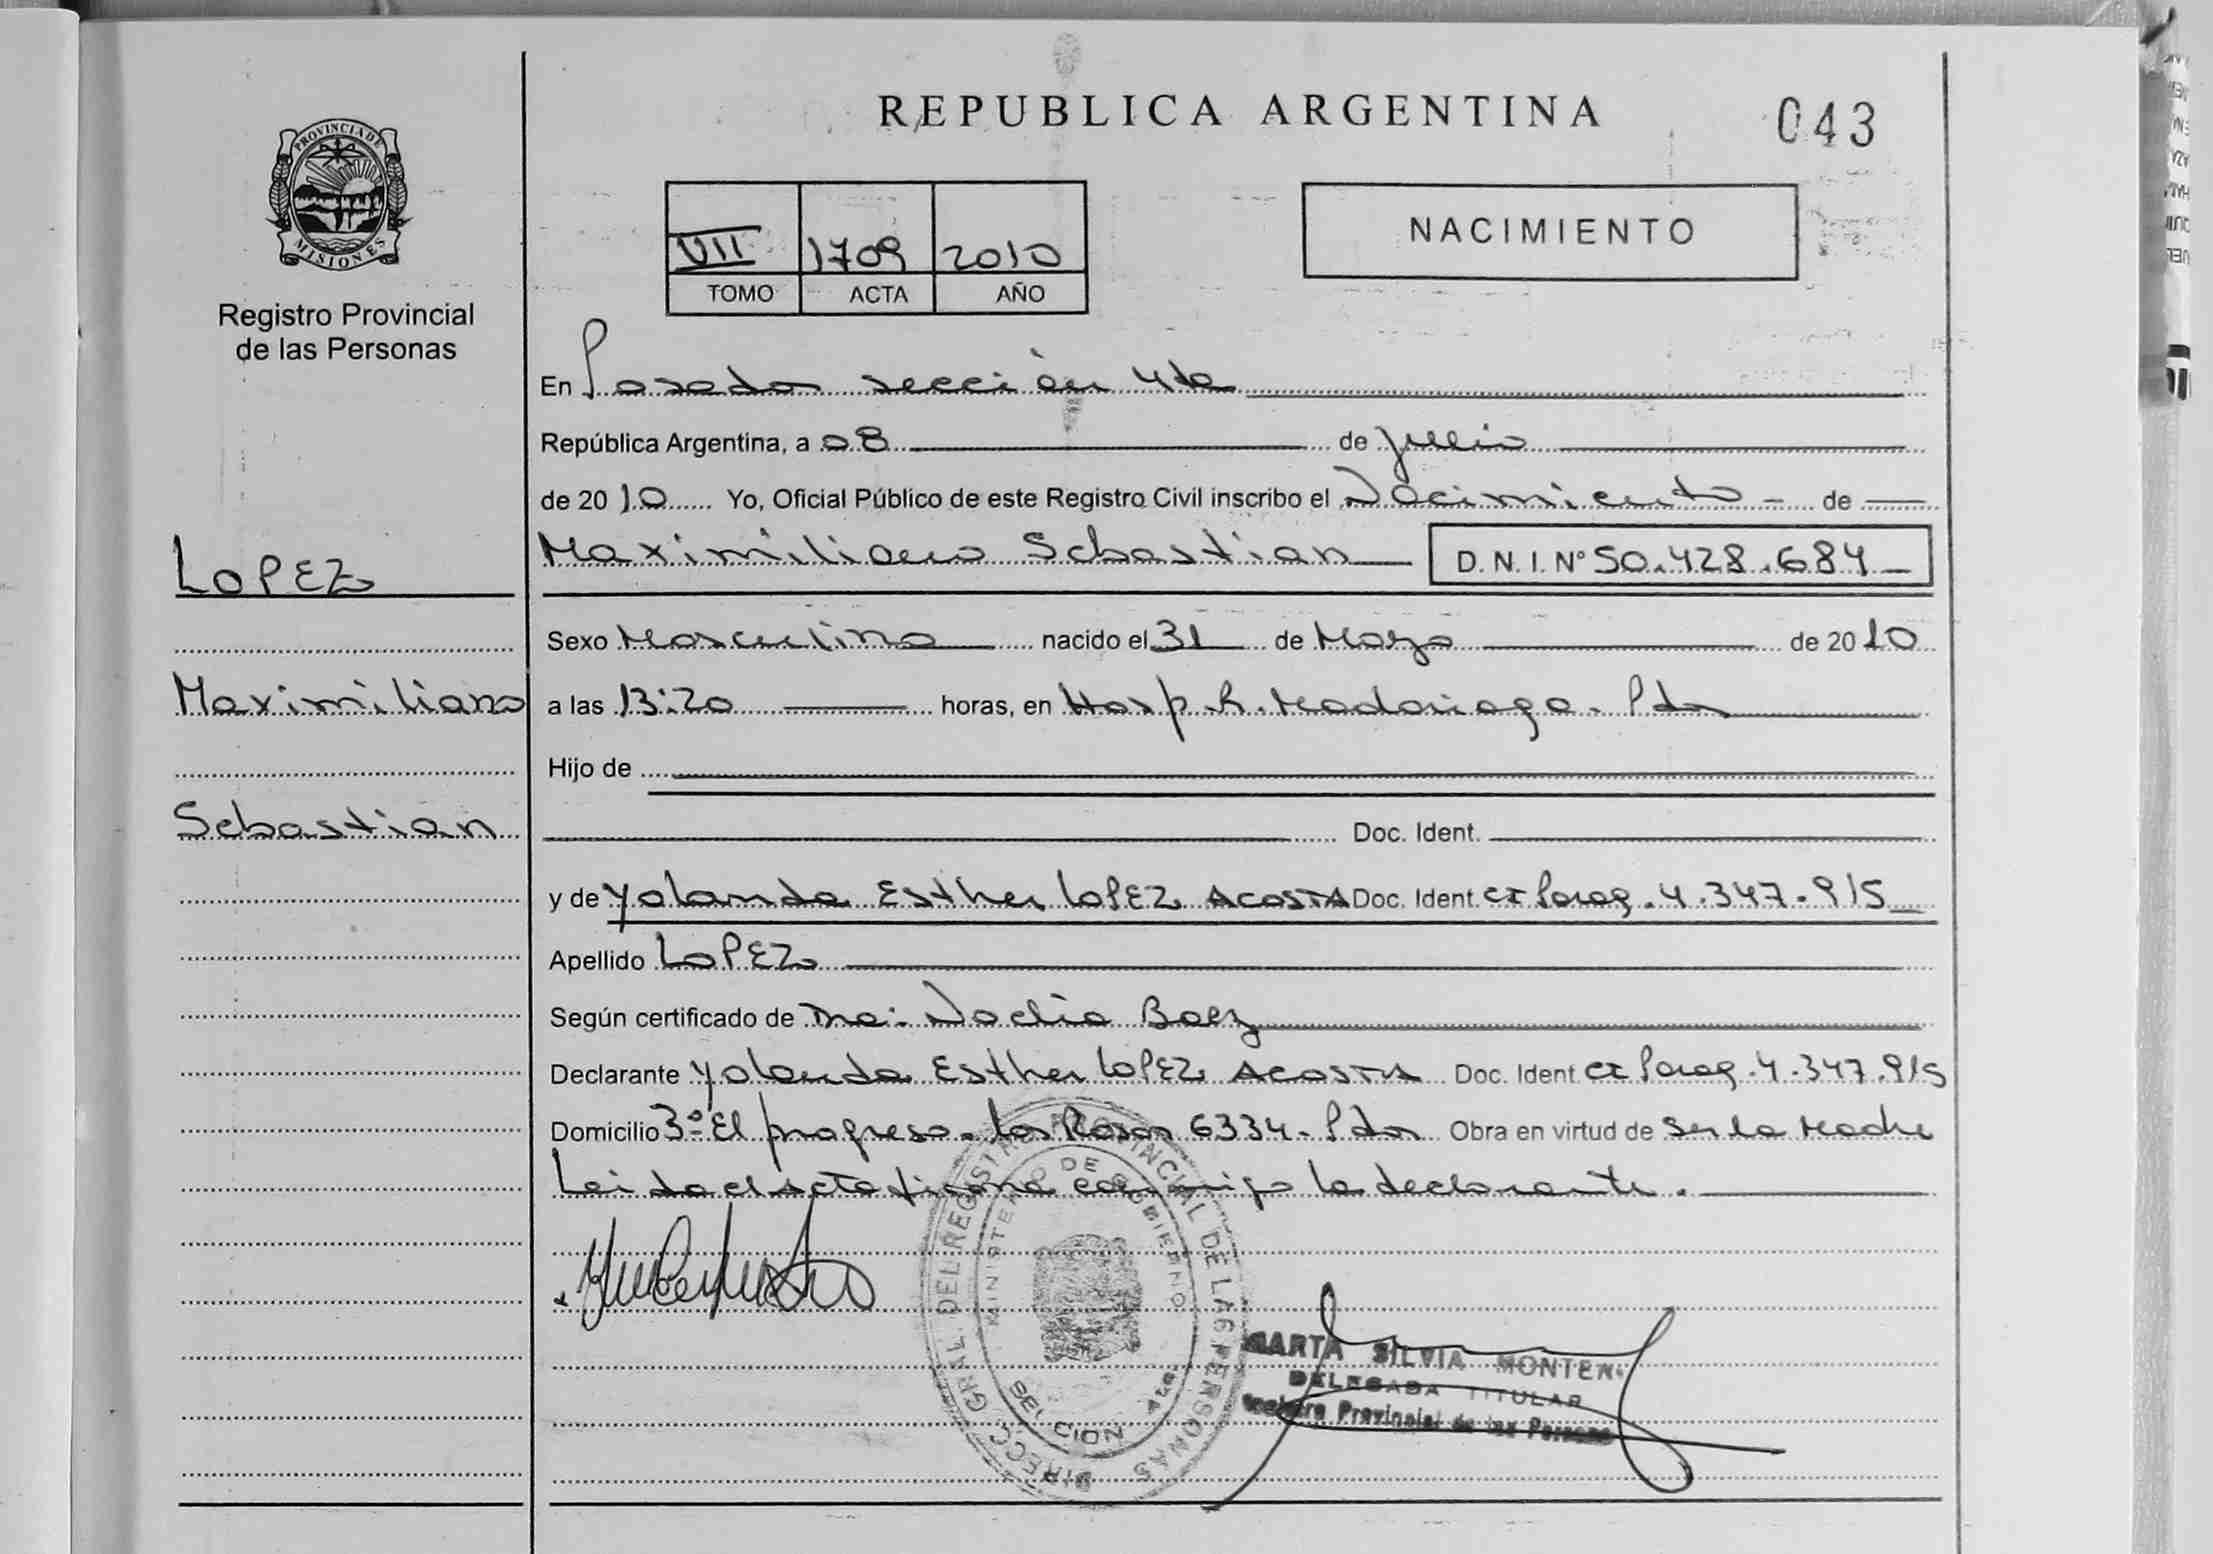 REPUBLICA ARGENTINA
043
PROVINCIA DE
MISIONES
Registro Provincial
de las Personas
VII 1709 2010
TOMO ACTA AÑO
NACIMIENTO
En Posadas sección 4ta
República Argentina, a 08 de Julio
de 2010 Yo, Oficial Público de este Registro Civil inscribo el Nacimiento - de
Maximiliano Sebastian D. N. I. Nº 50.428.684
LOPEZ
Maximiliano
Sebastian
Sexo Masculino nacido el 31 de Mayo de 2010
a las 13:20 horas, en Hosp. R. Madariaga. Pdas
Hijo de
Doc. Ident.
y de Yolanda Esther LOPEZ ACOSTA Doc. Ident. CI Parag. 4.347.915
Apellido LOPEZ
Según certificado de Noelia Baez
Declarante Yolanda Esther LOPEZ ACOSTA Doc. Ident CI Parag. 4.347.915
Domicilio El progreso. Las Rosas 6334. Pdas Obra en virtud de ser la Madre
Leida el acta firma conmigo la declarante.
DIRECC. GRAL. DEL REGISTRO PROVINCIAL DE LAS PERSONAS
MINISTERIO DE GOBIERNO
SECCION 4ta.
MARTA SILVIA
DELEGADA TITULAR
Registro Provincial de las Personas